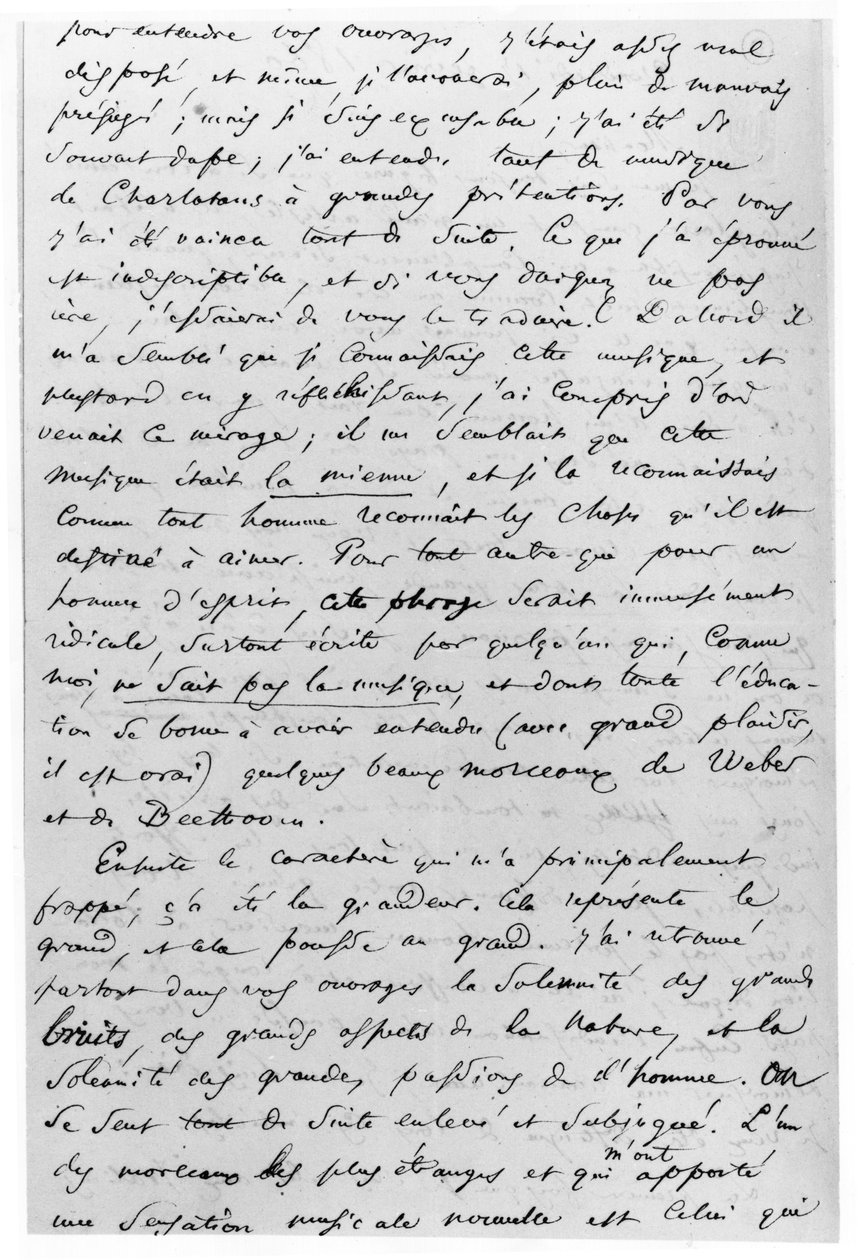 pour entendre vos ouvrages, j'étais assez mal
disposé, et même, je l'avouerai, plein de mauvais
préjugés ; mais je suis excusable ; j'ai été si
souvent dupe ; j'ai entendu tant de musique
de Charlatans à grandes prétentions. Par vous
j'ai été vaincu tout de suite. Ce que j'ai éprouvé
est indescriptible, et si vous daignez ne pas
rire, j'essaierai de vous le traduire. D'abord il
m'a semblé que je connaissais cette musique, et
plus tard en y réfléchissant, j'ai compris d'où
venait ce mirage ; il me semblait que cette
musique était la mienne, et je la reconnaissais
comme tout homme reconnaît les choses qu'il est
destiné à aimer. Pour tout autre que pour un
homme d'esprit, cette phrase serait immensément
ridicule, surtout écrite par quelqu'un qui, comme
moi, ne sait pas la musique, et dont toute l'éduca-
tion se borne à avoir entendu (avec grand plaisir,
il est vrai) quelques beaux morceaux de Weber
et de Beethoven.
Ensuite le caractère qui m'a principalement
frappé, ç'a été la grandeur. Cela représente le
grand, et cela pousse au grand. J'ai retrouvé
partout dans vos ouvrages la solennité des grands
bruits, des grands aspects de la Nature, et la
solennité des grandes passions de l'homme. On
se sent tout de suite enlevé et subjugué. L'un
des morceaux les plus étranges et qui m'ont apporté
une sensation musicale nouvelle est celui qui